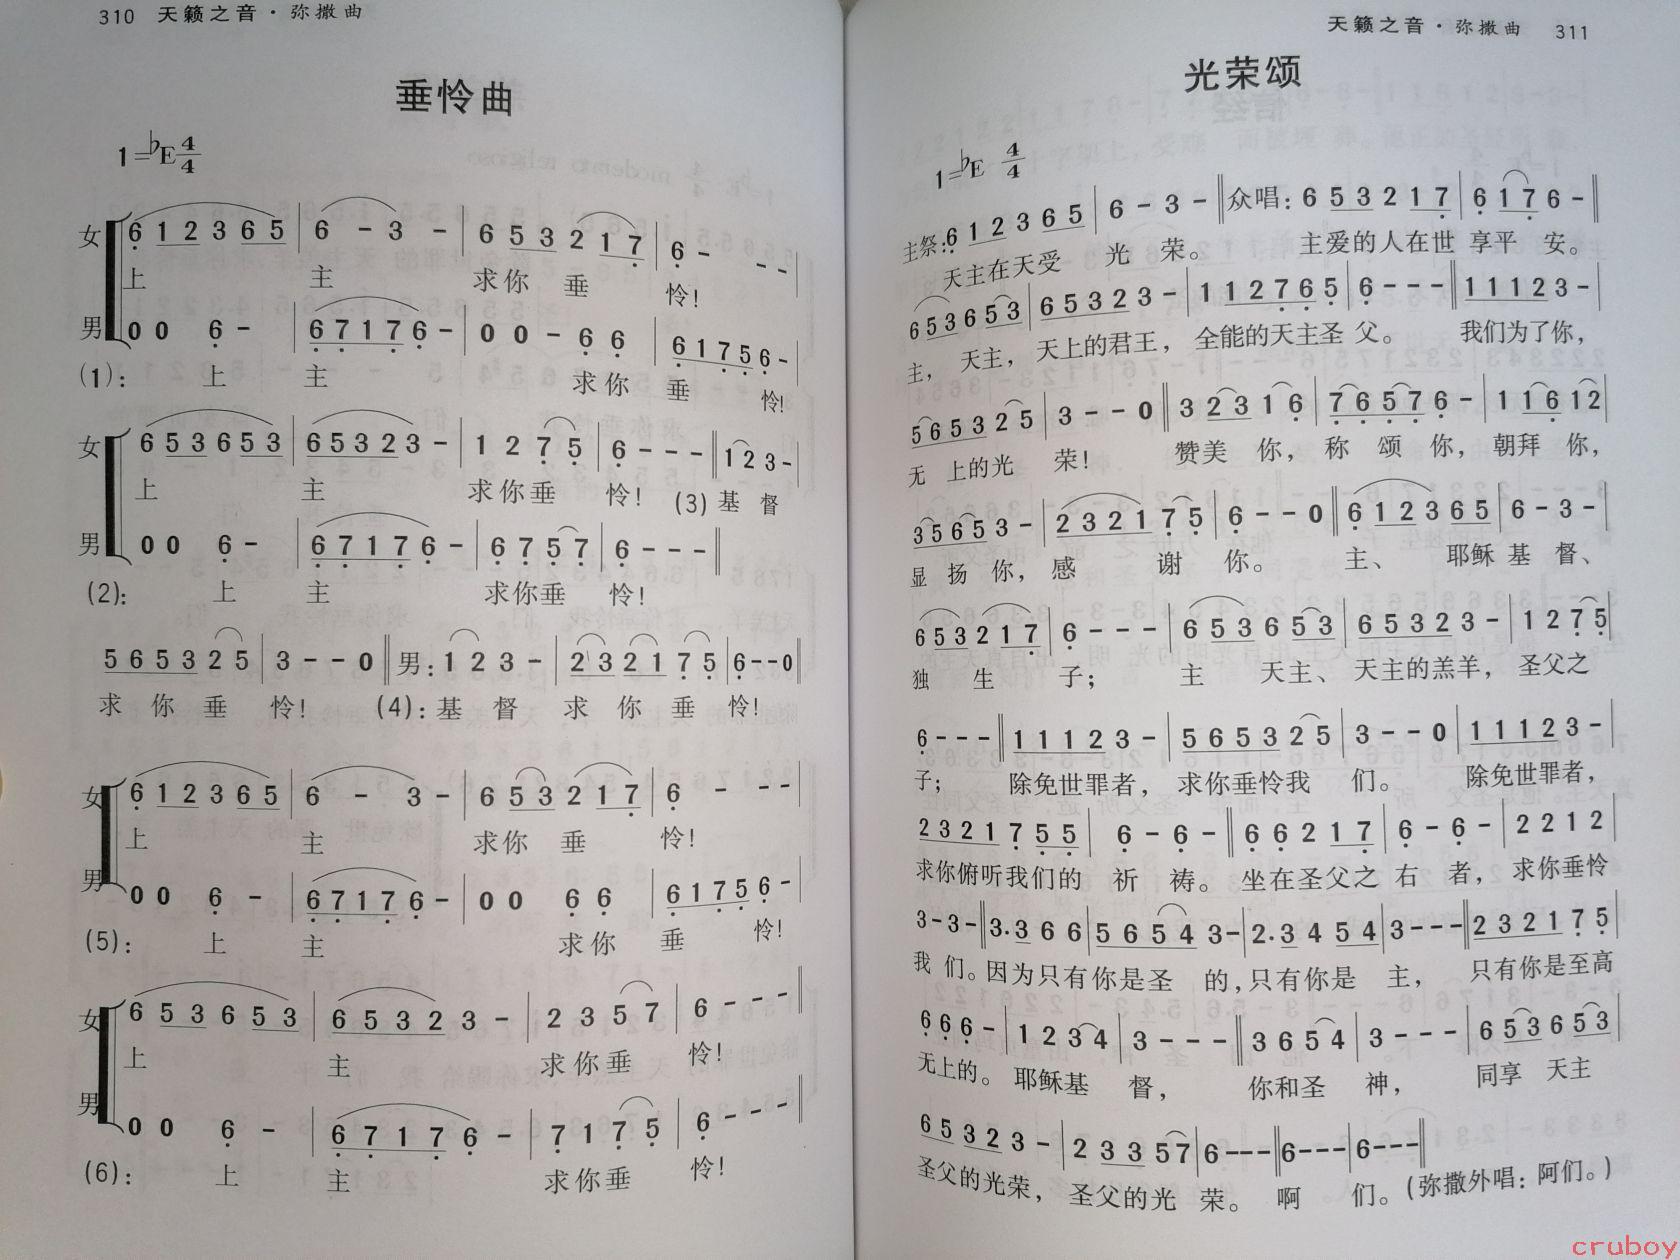 310 天籁之音·弥撒曲
垂怜曲
1=♭E 4/4
女 6 1 2 3 6 5 | 6 - 3 - | 6 5 3 2 1 7 | 6 - - - |
上 主 求你 垂 怜!
男 0 0 6 - | 6 7 1 7 6 - | 0 0 - 6 6 | 6 1 7 5 6 - |
(1): 上 主 求你 垂 怜!
女 6 5 3 6 5 3 | 6 5 3 2 3 - | 1 2 7 5 | 6 - - - || 1 2 3 - |
上 主 求你垂 怜! (3) 基 督
男 0 0 6 - | 6 7 1 7 6 - | 6 7 5 7 | 6 - - - ||
(2): 上 主 求你垂 怜!
5 6 5 3 2 5 | 3 - - 0 || 男: 1 2 3 - | 2 3 2 1 7 5 | 6 - - 0 ||
求 你 垂 怜! (4): 基 督 求 你 垂 怜!
女 6 1 2 3 6 5 | 6 - 3 - | 6 5 3 2 1 7 | 6 - - - |
上 主 求你 垂 怜!
男 0 0 6 - | 6 7 1 7 6 - | 0 0 6 6 | 6 1 7 5 6 - |
(5): 上 主 求你 垂 怜!
女 6 5 3 6 5 3 | 6 5 3 2 3 - | 2 3 5 7 | 6 - - - ||
上 主 求你垂 怜!
男 0 0 6 - | 6 7 1 7 6 - | 7 1 7 5 | 6 - - - ||
(6): 上 主 求你垂 怜!
天籁之音·弥撒曲 311
光荣颂
1=♭E 4/4
主祭: 6 1 2 3 6 5 | 6 - 3 - || 众唱: 6 5 3 2 1 7 | 6 1 7 6 - ||
天主在天受 光 荣。 主爱的人在世 享平 安。
6 5 3 6 5 3 | 6 5 3 2 3 - | 1 1 2 7 6 5 | 6 - - - || 1 1 1 2 3 - |
主, 天主, 天上的君王, 全能的天主圣 父。 我们为了你,
5 6 5 3 2 5 | 3 - - 0 || 3 2 3 1 6 | 7 6 5 7 6 - | 1 1 6 1 2 |
无 上的光 荣! 赞美 你, 称 颂 你, 朝拜 你,
3 5 6 5 3 - | 2 3 2 1 7 5 | 6 - - 0 || 6 1 2 3 6 5 | 6 - 3 - |
显 扬 你, 感 谢 你。 主、 耶稣 基 督、
6 5 3 2 1 7 | 6 - - - | 6 5 3 6 5 3 | 6 5 3 2 3 - | 1 2 7 5 |
独 生 子; 主 天主、 天主的羔羊, 圣父之
6 - - - || 1 1 1 2 3 - | 5 6 5 3 2 5 | 3 - - 0 | 1 1 1 2 3 - |
子; 除免世罪者, 求你垂怜我 们。 除免世罪者,
2 3 2 1 7 5 5 | 6 - 6 - || 6 6 2 1 7 | 6 - 6 - | 2 2 1 2 |
求你俯听我们的 祈 祷。 坐在圣父之 右 者, 求你垂怜
3 - 3 - || 3. 3 6 6 | 5 6 5 4 3 - | 2. 3 4 5 4 | 3 - - - || 2 3 2 1 7 5 |
我 们。因为只有你是圣 的,只有你是 主, 只有你是至高
6 6 6 - | 1 2 3 4 | 3 - - - || 3 6 5 4 | 3 - - - | 6 5 3 6 5 3 |
无上的。 耶稣基 督, 你和圣 神, 同享 天主
6 5 3 2 3 - | 2 3 3 5 7 | 6 - - - || 6 - - - | 6 - - - ||
圣父的光荣, 圣父的光 荣。 啊 们。(弥撒外唱:阿们。)
cruboy